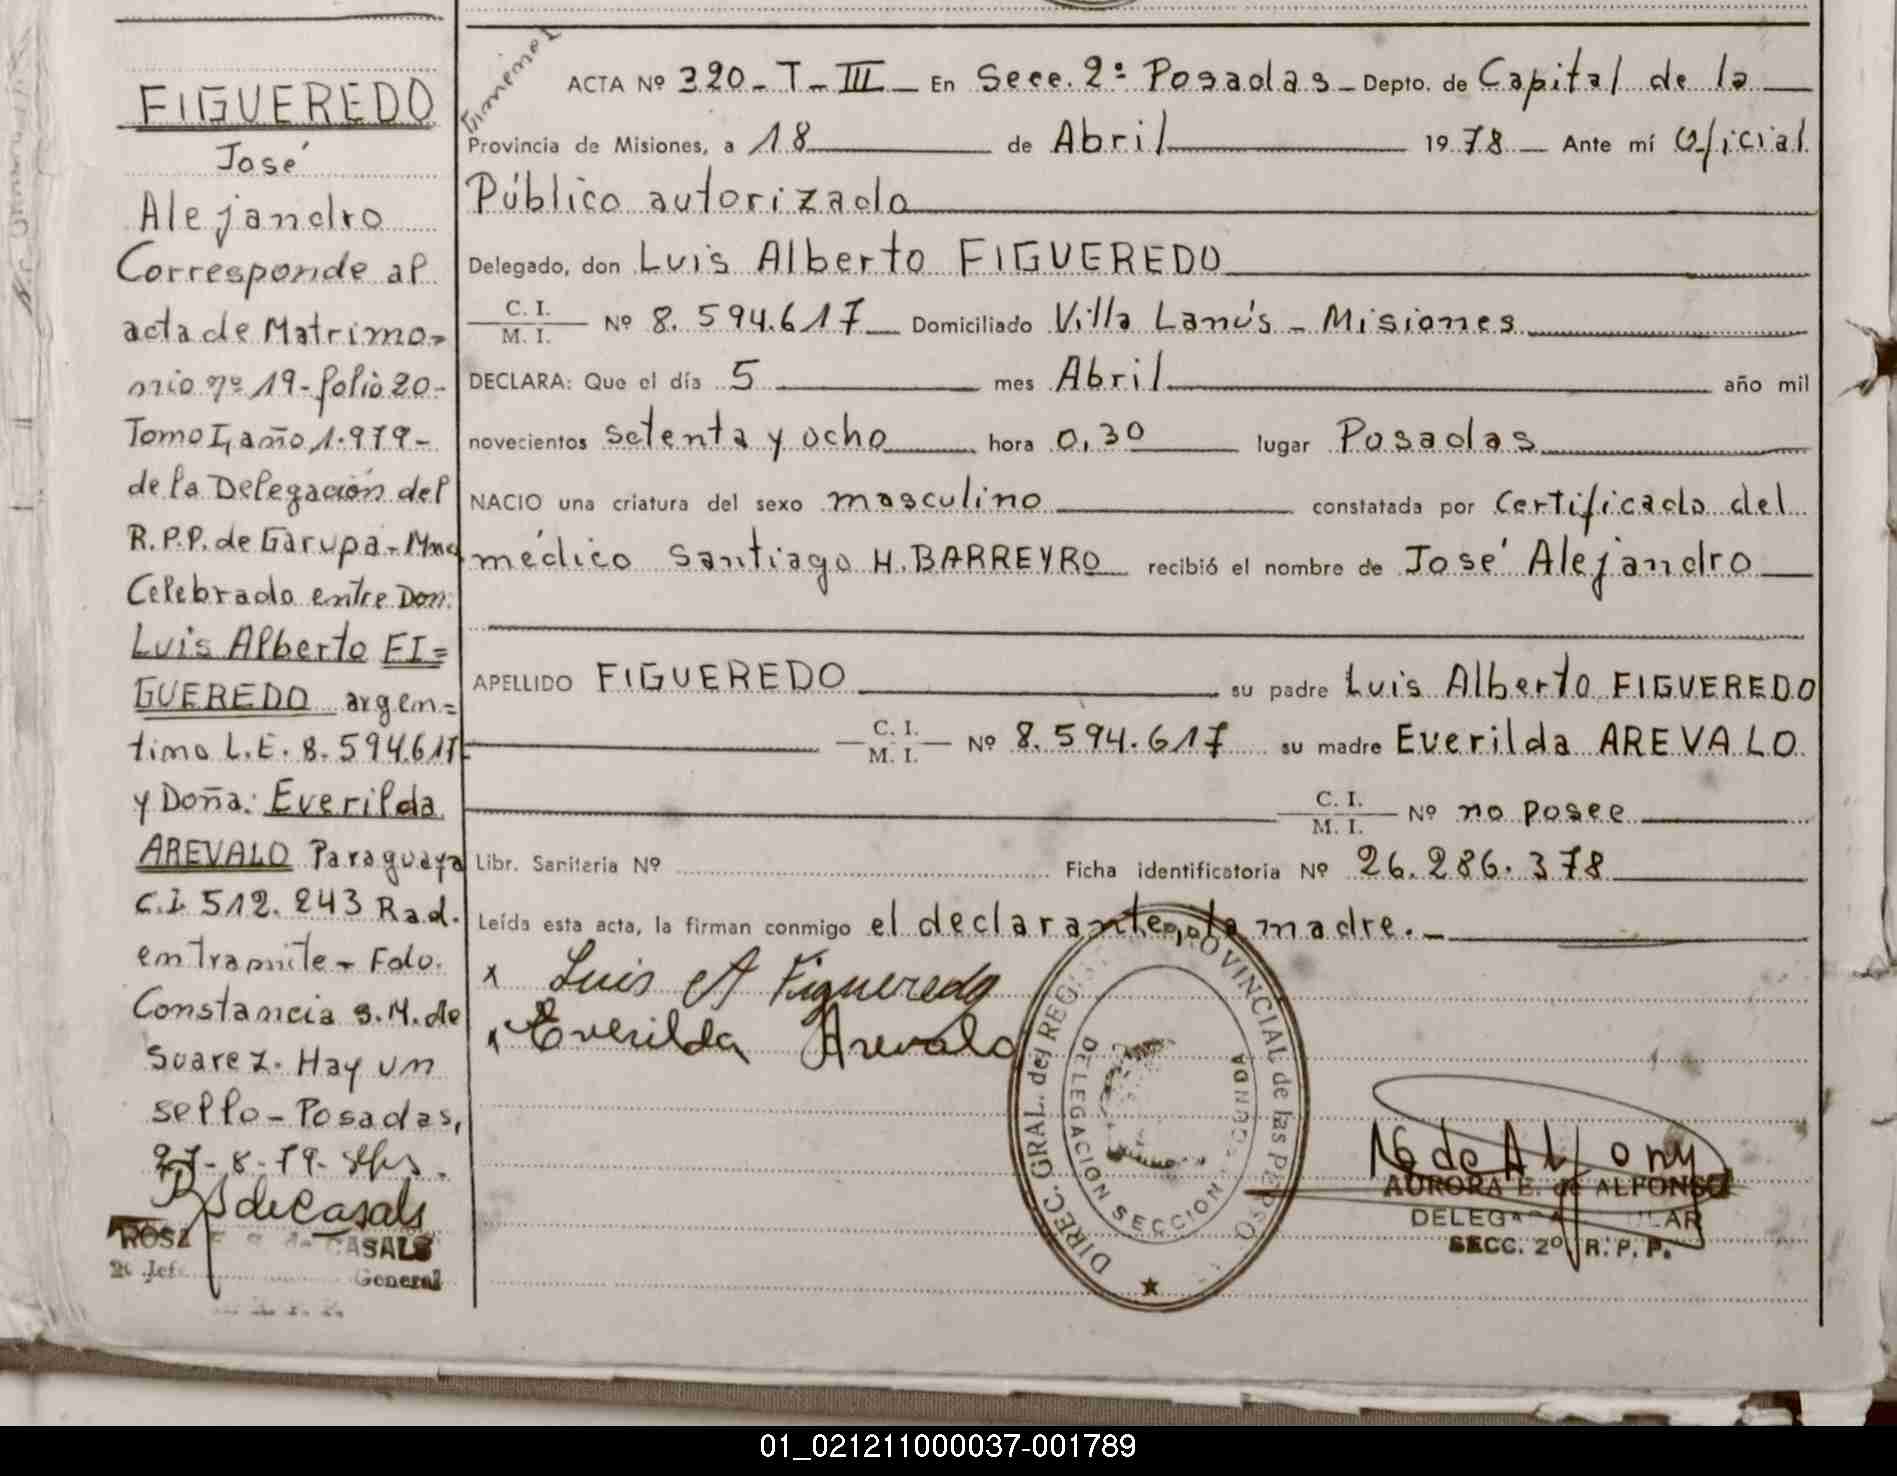 FIGUEREDO
José
Alejandro
Corresponde al
acta de Matrimo-
nio nº 19-folio 20-
Tomo I, año 1.979-
de la Delegación del
R.P.P. de Garupá-Mnes
Celebrado entre Don:
Luis Alberto FI=
GUEREDO argen=
tino L.E. 8.594.617
y Doña: Everilda
AREVALO Paraguaya
C.I. 512.243 Rad.
en tramite - Fdo.
Constancia S.M. de
Suarez. Hay un
sello - Posadas,
27-8-79-
BS de Casals
de CASALS
2º Jefe General
Gimenez
ACTA Nº 320-T-III En Secc. 2º Posadas Depto. de Capital de la
Provincia de Misiones, a 18 de Abril 1978 Ante mí Oficial
Público autorizado
Delegado, don Luis Alberto FIGUEREDO
C. I.
M. I. Nº 8.594.617 Domiciliado Villa Lanús - Misiones
DECLARA: Que el día 5 mes Abril año mil
novecientos setenta y ocho hora 0,30 lugar Posadas
NACIO una criatura del sexo masculino constatada por Certificado del
médico Santiago H. BARREYRO recibió el nombre de José Alejandro
APELLIDO FIGUEREDO su padre Luis Alberto FIGUEREDO
C. I.
M. I. Nº 8.594.617 su madre Everilda AREVALO
C. I.
M. I. Nº no posee
Libr. Sanitaria Nº Ficha identificatoria Nº 26.286.378
Leída esta acta, la firman conmigo el declarante, la madre.-
x Luis A Figueredo
x Everilda Arevalo
DIREC. GRAL. del REG. PROVINCIAL de las PERS.
DELEGACION SECCION SEGUNDA
AURORA E. de ALFONSO
SECC. 2º R. P. P.
01_021211000037-001789